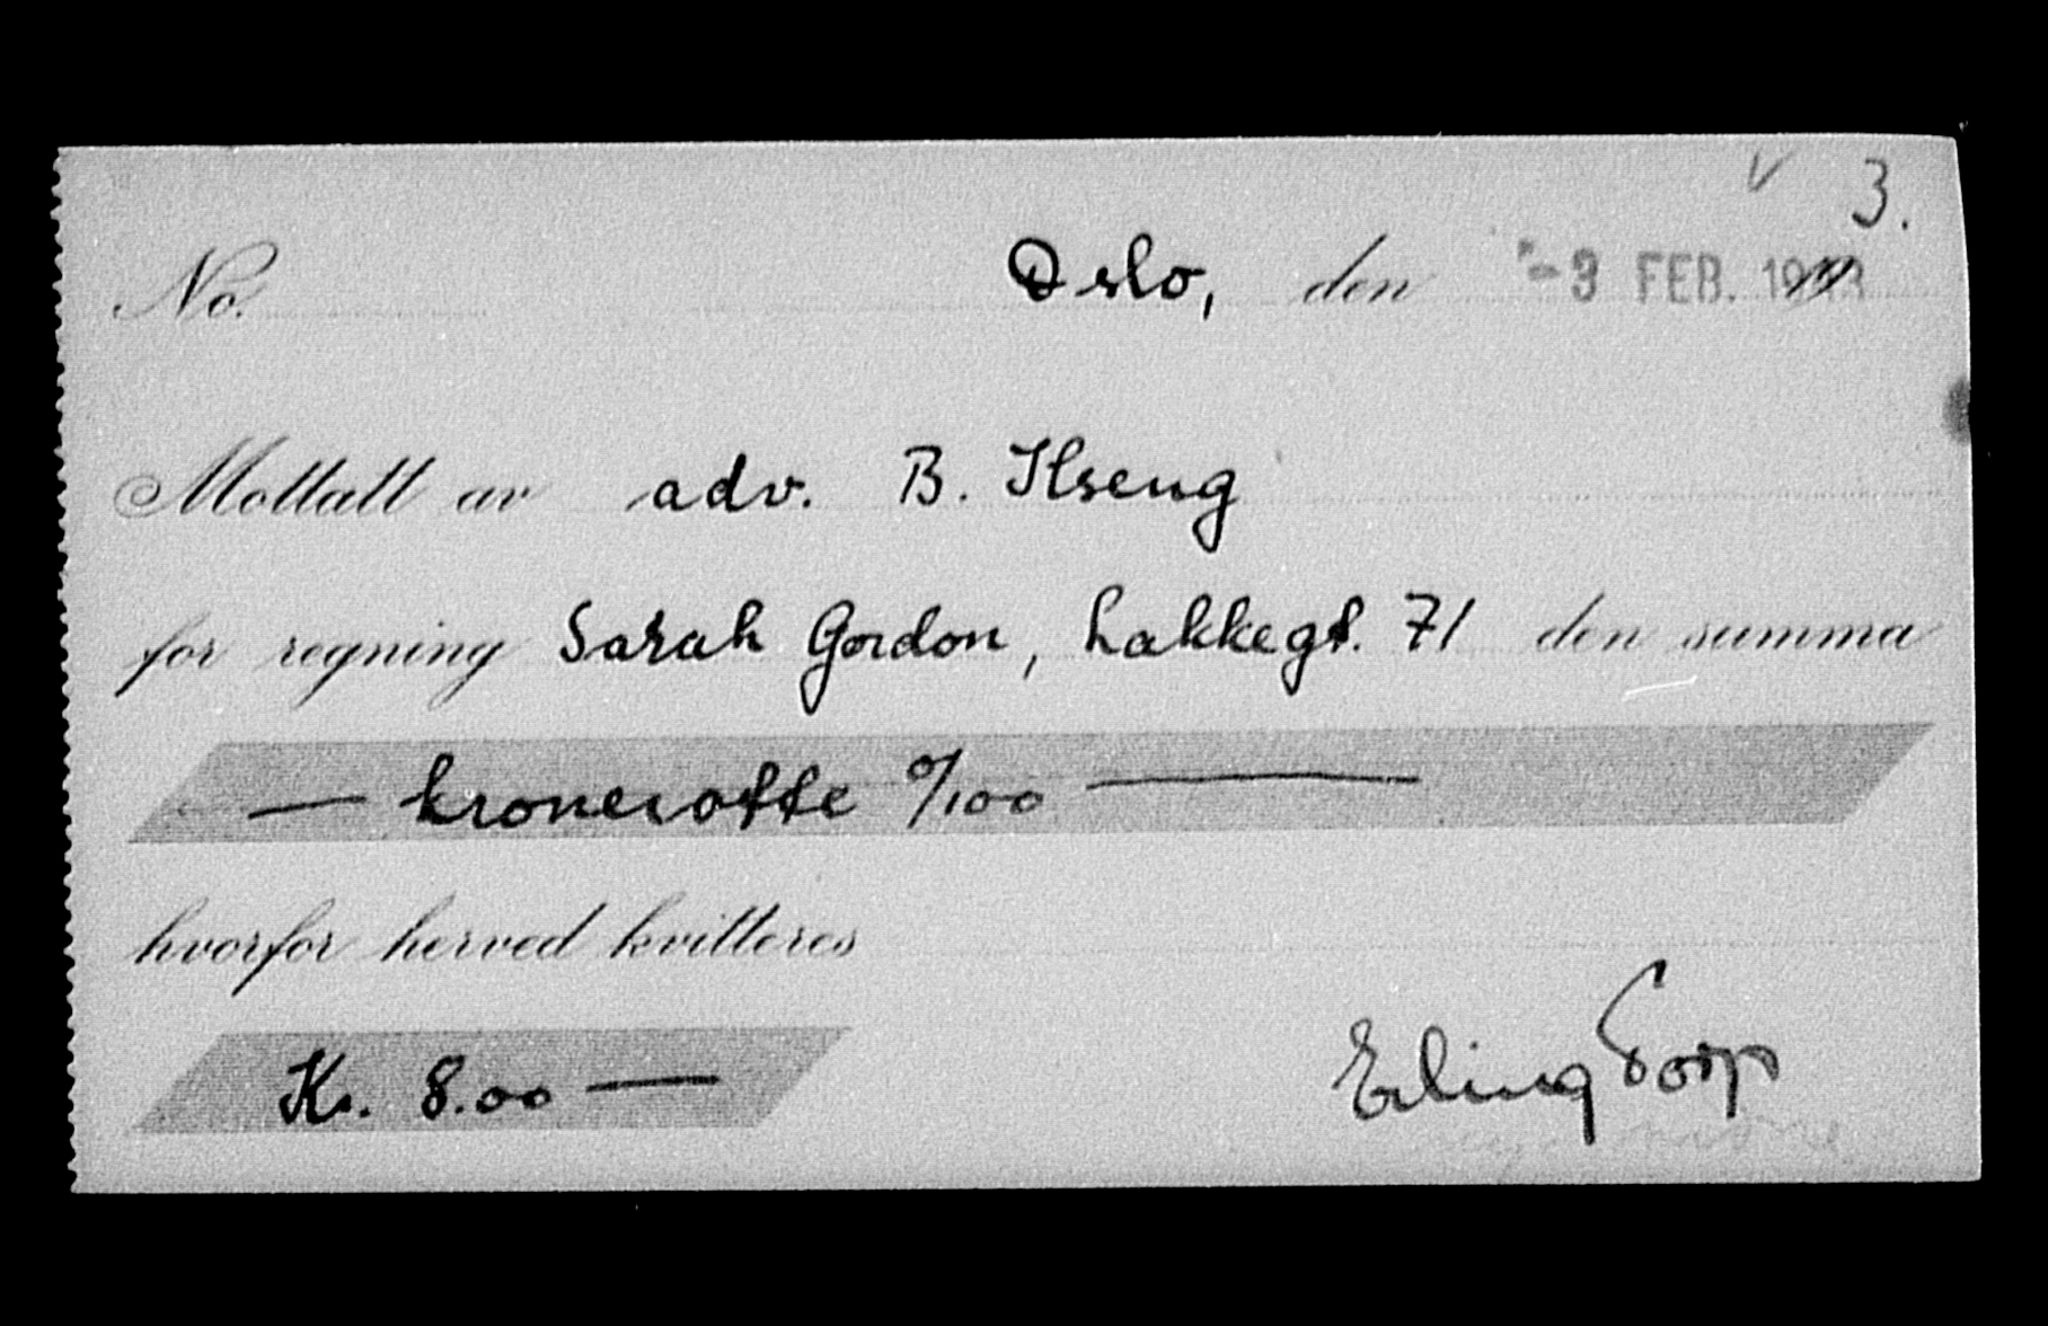 V 3.
No. Oslo, den -3 FEB. 1943
Mottatt av adv. B. Ilseng
for regning Sarah Gordon, Lakkegt. 71 den summa
— kronerotte 0/100 —
hvorfor herved kvitteres
Kr. 8.00 —
Erling Torp